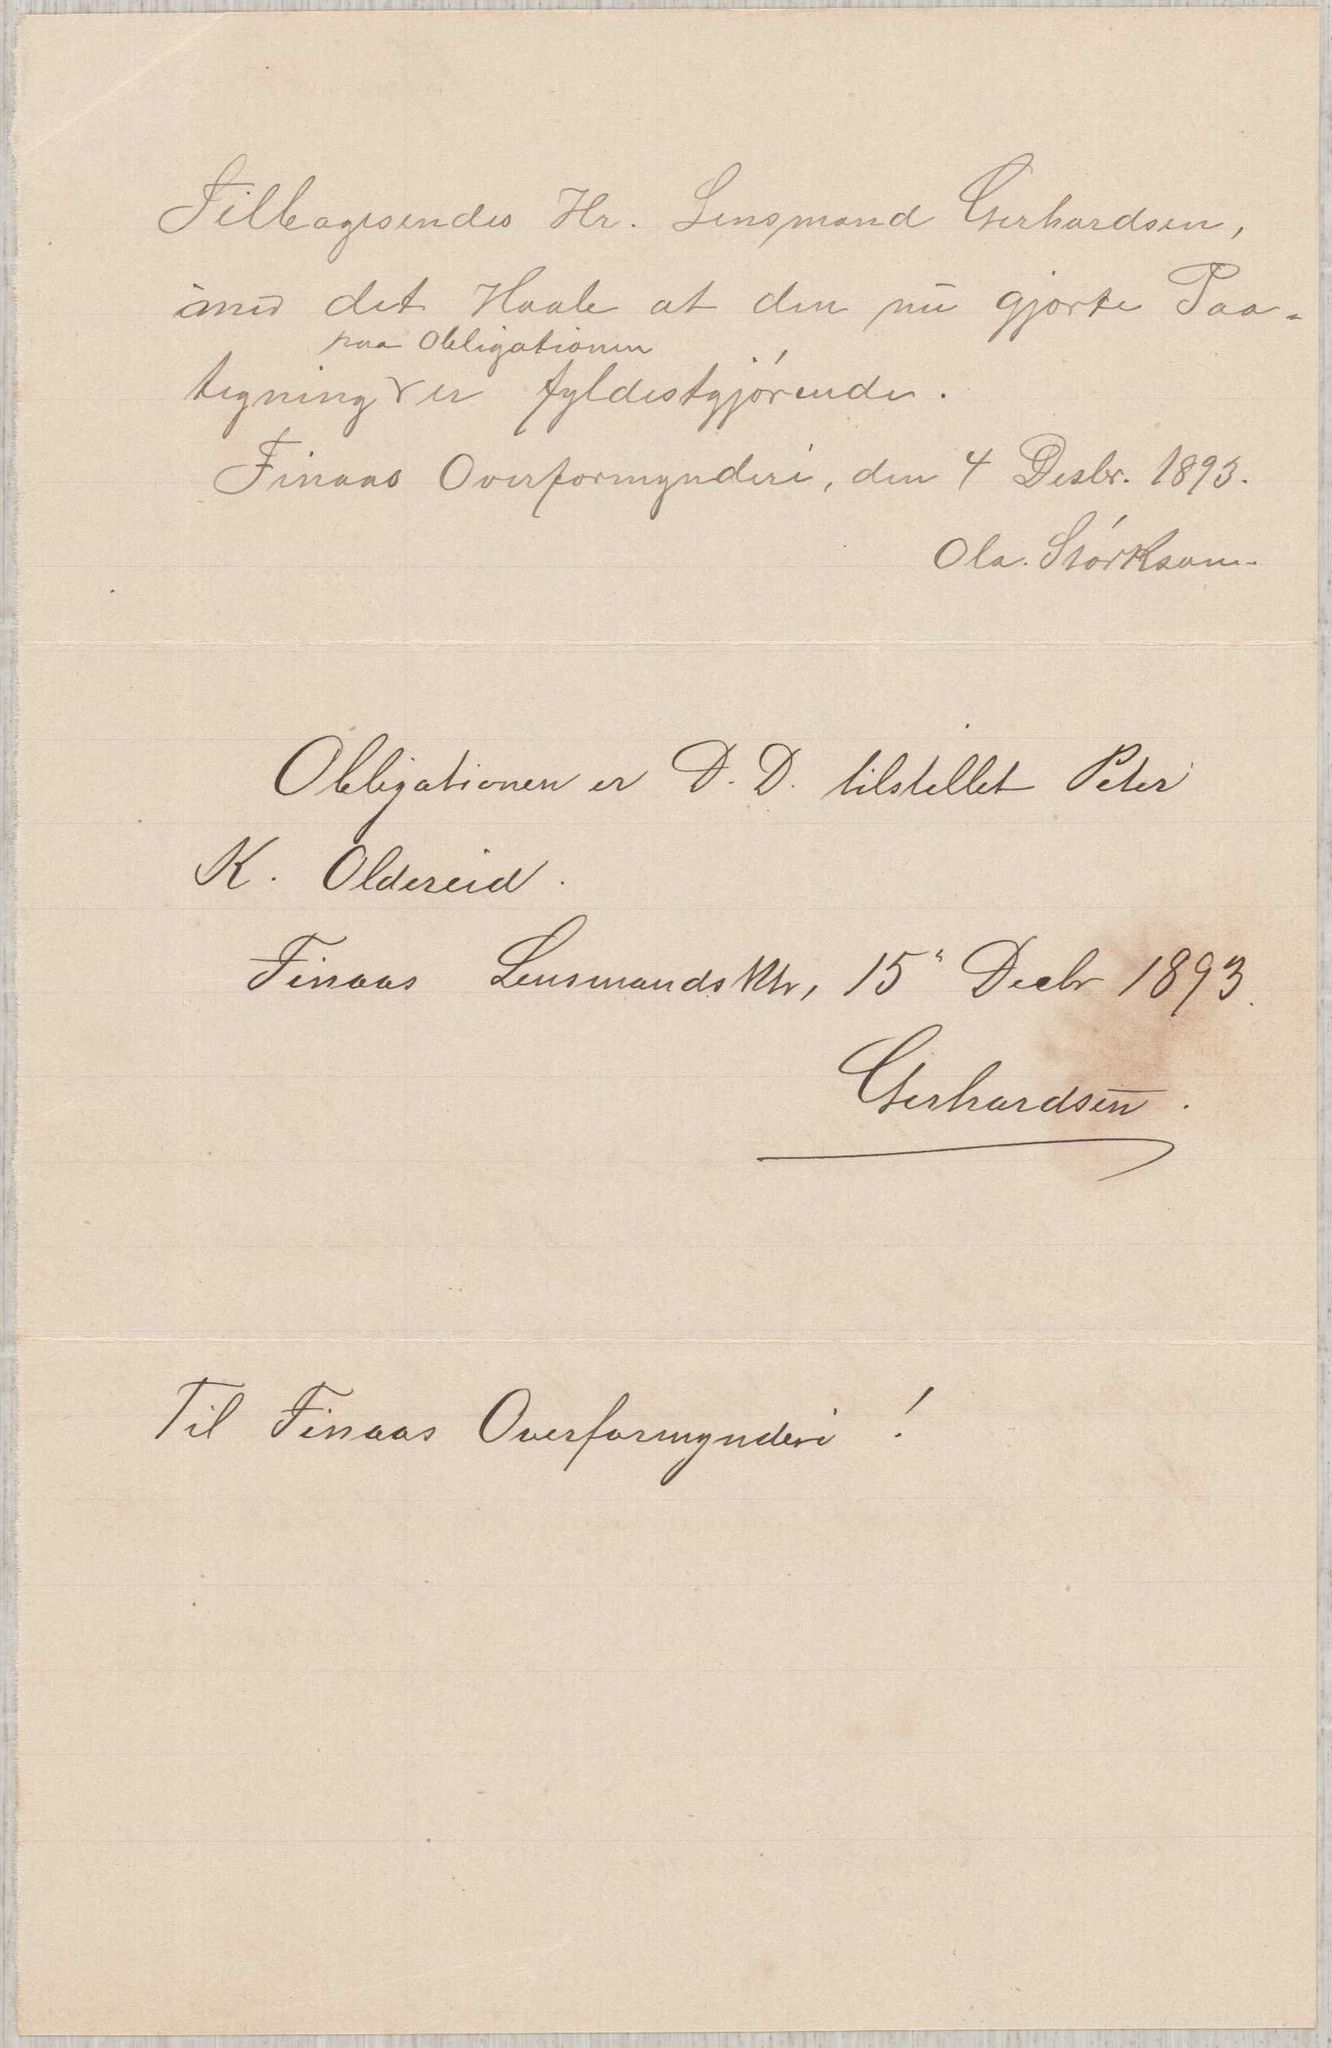 Tilbagesendes Hr. Lensmand Gerhardsen,
med det Haab at den nu gjorte Paa-
paa Obligationen
tegning er fyldestgjørende.
Finaas Overformynderi, den 4 Desbr. 1893.
Ola. Størksom.
Obligationen er D. D. tilstillet Peter
K. Oldereid.
Finaas Lensmandsktr, 15" Decbr 1893.
Gerhardsen.
Til Finaas Overformynderi!